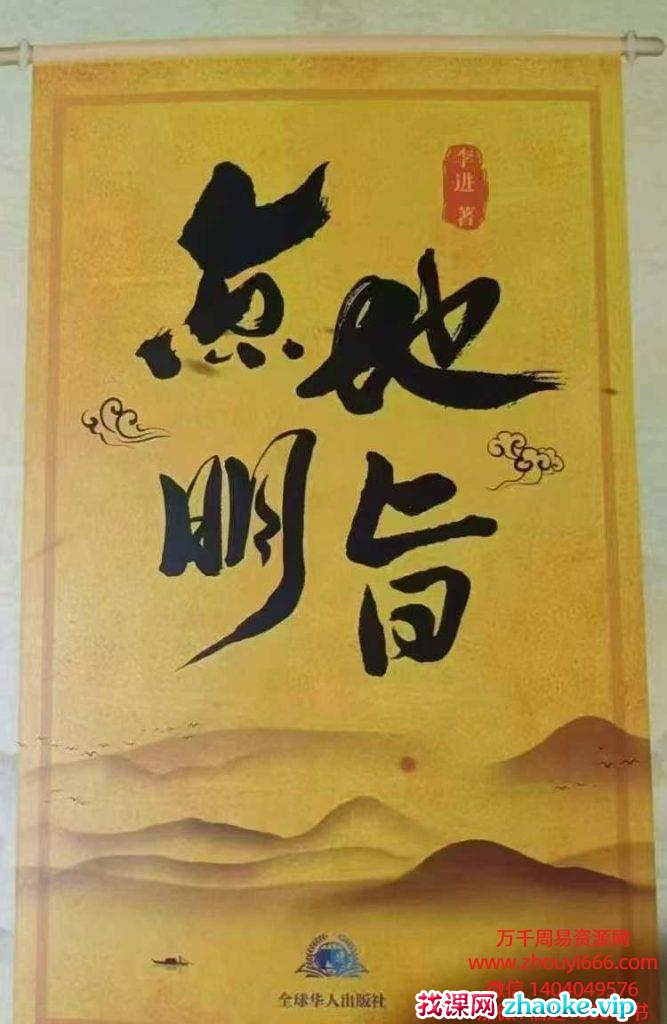 李进 著
点地
明旨
全球华人出版社
万千周易资源网
www.zhouyi666.com
微信 1404049576
找课网zhaoke.vip
书